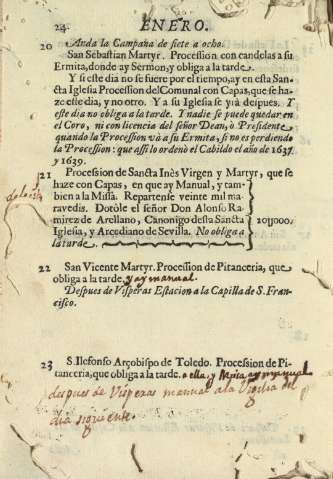 24. ENERO.
20 Anda la Campana de siete a ocho.
San Sebastian Martyr. Procession con candelas a su
Ermita, donde ay Sermon, y obliga a la tarde.
Y si este dia no se fuere por el tiempo, ay en esta Sanc
ta Iglesia Procession del Comunal con Capas, que se ha-
ze este dia, y no otro. Y a su Iglesia se yrà despues. Y
este dia no obliga a la tarde. Y nadie se puede quedar en
el Coro, ni con licencia del señor Dean, ò Presidente
quando la Procession và a su Ermita, si no es perdiendo
la Procession: que assi lo ordenò el Cabildo el año de 1637
y 1639.
21 Procession de Sancta Inès Virgen y Martyr, que se
haze con Capas, en que ay Manual, y tam-
bien a la Missa. Repartense veinte mil ma-
ravedis. Dotòle el señor Don Alonso Ra-
mirez de Arellano, Canonigo desta Sancta 20U000
Iglesia, y Arcediano de Sevilla. No obliga a
la tarde.
22 San Vicente Martyr. Procession de Pitanceria, que
obliga a la tarde. y ay manual.
Despues de Visperas Estacion a la Capilla de S. Fran-
cisco.
23 S. Ilefonso Arçobispo de Toledo. Procession de Pi-
tanceria, que obliga a la tarde. a ella, y Missa, ay manual
despues de Visperas manual a la Vigilia del
dia siguiente.